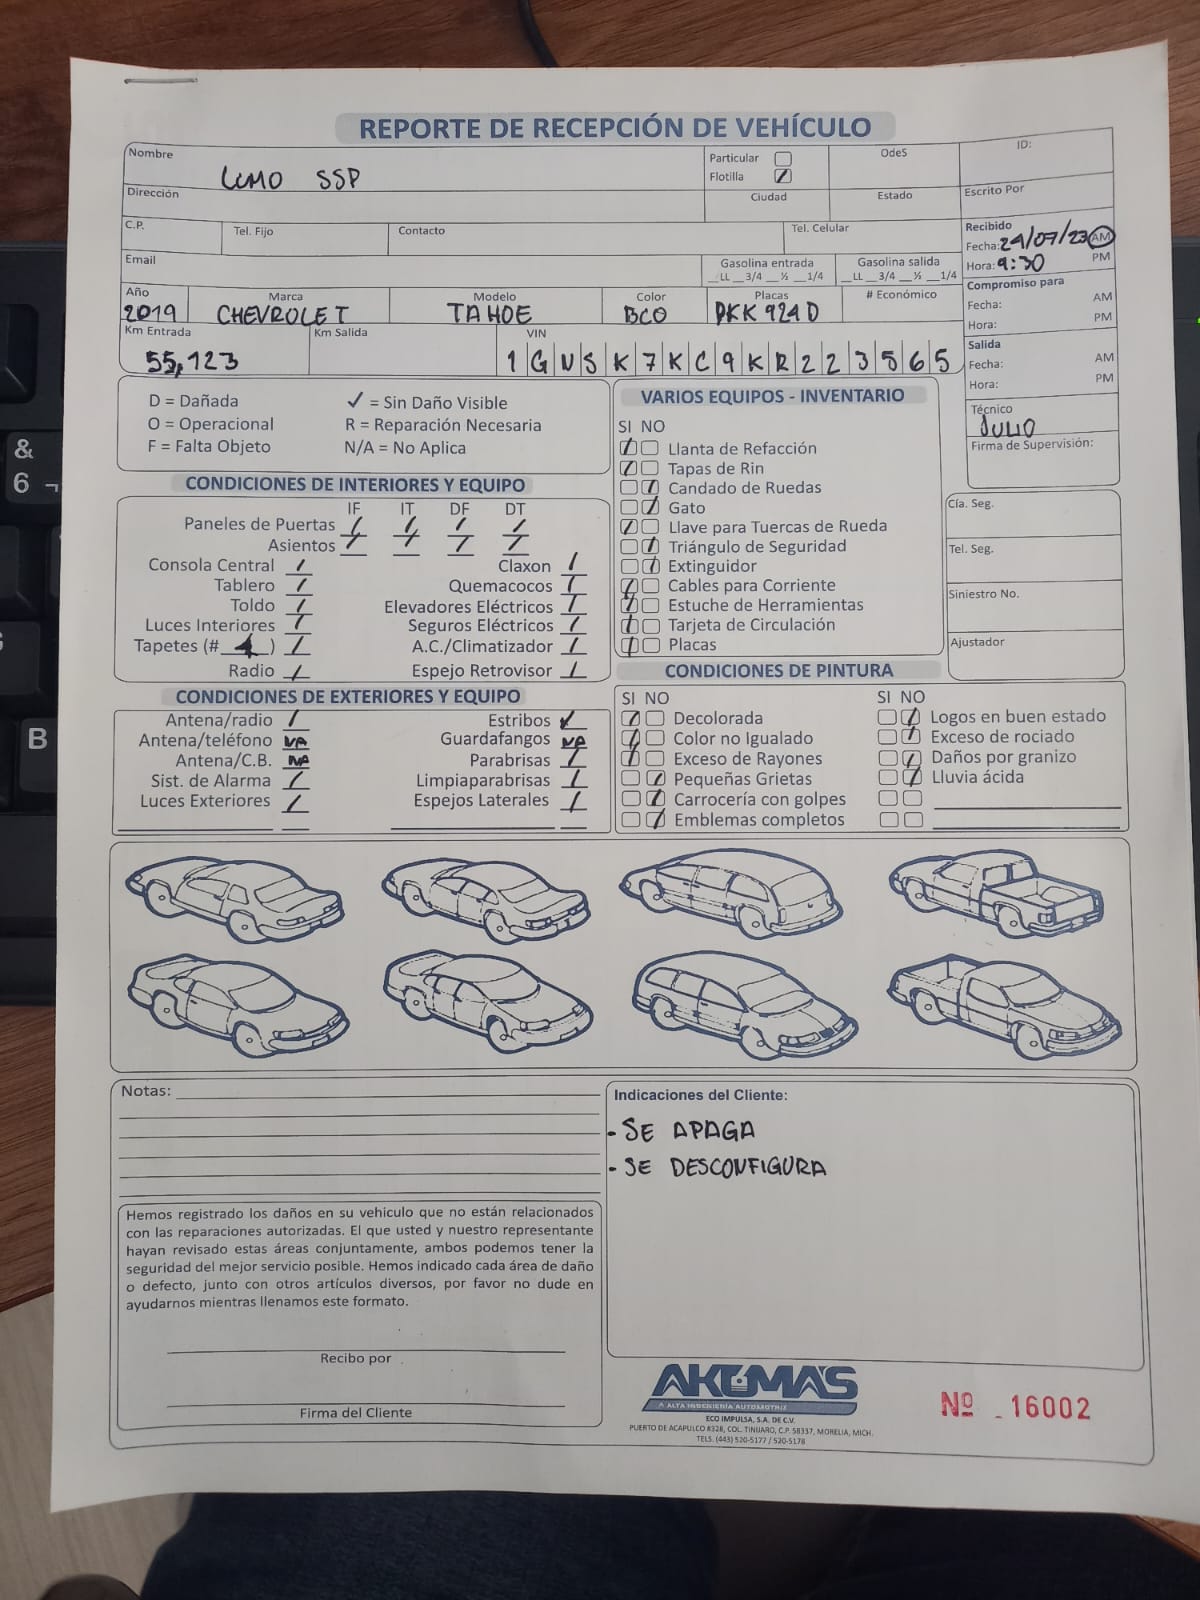 REPORTE DE RECEPCIÓN DE VEHÍCULO
Nombre
LUMO SSP
Particular
Flotilla
OdeS
ID:
Dirección
Ciudad
Estado
Escrito Por
C.P.
Tel. Fijo
Contacto
Tel. Celular
Recibido
Fecha: 24/07/23 AM
Hora: 9:30 PM
Email
Gasolina entrada
__LL __3/4 __½ __1/4
Gasolina salida
__LL __3/4 __½ __1/4
Compromiso para
Fecha: AM
Hora: PM
Año
2019
Marca
CHEVROLET
Modelo
TAHOE
Color
BCO
Placas
# Económico
Km Entrada
55,123
Km Salida
VIN
Salida
Fecha: AM
Hora: PM
Técnico
JULIO
Firma de Supervisión:
D = Dañada
O = Operacional
F = Falta Objeto
✓ = Sin Daño Visible
R = Reparación Necesaria
N/A = No Aplica
CONDICIONES DE INTERIORES Y EQUIPO
IF IT DF DT
Paneles de Puertas / / / /
Asientos / / / /
Consola Central /
Tablero /
Toldo /
Luces Interiores /
Tapetes (# 4 ) /
Radio /
Claxon /
Quemacocos /
Elevadores Eléctricos /
Seguros Eléctricos /
A.C./Climatizador /
Espejo Retrovisor /
VARIOS EQUIPOS - INVENTARIO
SI NO
Llanta de Refacción
Tapas de Rin
Candado de Ruedas
Gato
Llave para Tuercas de Rueda
Triángulo de Seguridad
Extinguidor
Cables para Corriente
Estuche de Herramientas
Tarjeta de Circulación
Placas
Cía. Seg.
Tel. Seg.
Siniestro No.
Ajustador
CONDICIONES DE EXTERIORES Y EQUIPO
Antena/radio /
Antena/teléfono NA
Antena/C.B. NA
Sist. de Alarma /
Luces Exteriores /
Estribos ✓
Guardafangos NA
Parabrisas /
Limpiaparabrisas /
Espejos Laterales /
CONDICIONES DE PINTURA
SI NO
Decolorada
Color no Igualado
Exceso de Rayones
Pequeñas Grietas
Carrocería con golpes
Emblemas completos
SI NO
Logos en buen estado
Exceso de rociado
Daños por granizo
Lluvia ácida
Notas:
Indicaciones del Cliente:
- SE APAGA
- SE DESCONFIGURA
Hemos registrado los daños en su vehiculo que no están relacionados
con las reparaciones autorizadas. El que usted y nuestro representante
hayan revisado estas áreas conjuntamente, ambos podemos tener la
seguridad del mejor servicio posible. Hemos indicado cada área de daño
o defecto, junto con otros artículos diversos, por favor no dude en
ayudarnos mientras llenamos este formato.
Recibo por
Firma del Cliente
AKUMA'S
A ALTA INGENIERÍA AUTOMOTRIZ
ECO IMPULSA, S.A. DE C.V.
PUERTO DE ACAPULCO #328, COL. TINIJARO, C.P. 58337, MORELIA, MICH.
TELS. (443) 520-5177 / 520-5178
Nº 16002
&
6 ¬
B